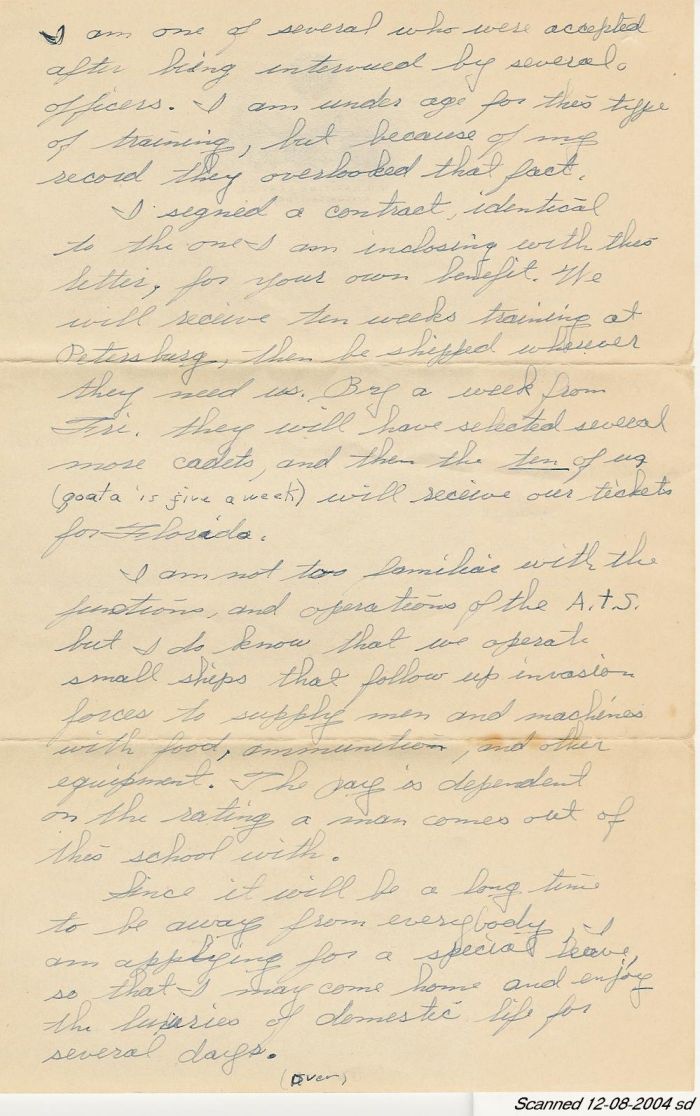 I am one of several who were accepted
after being intervued by several
officers. I am under age for this type
of training, but because of my
record they overlooked that fact.
I signed a contract, identical
to the one I am inclosing with this
letter, for your own benefit. We
will receive ten weeks training at
Petersburg, then be shipped wherever
they need us. By a week from
Fri. they will have selected several
more cadets, and then the ten of us
(qoata is five a week) will receive our tickets
for Florida.
I am not too familiar with the
functions, and operations of the A.T.S.
but I do know that we operate
small ships that follow up invasion
forces to supply men and machines
with food, ammunition, and other
equipment. The pay is dependent
on the rating a man comes out of
this school with.
Since it will be a long time
to be away from everybody, I
am applying for a special leave,
so that I may come home and enjoy
the luxuries of domestic life for
several days.
(over)
Scanned 12-08-2004 sd